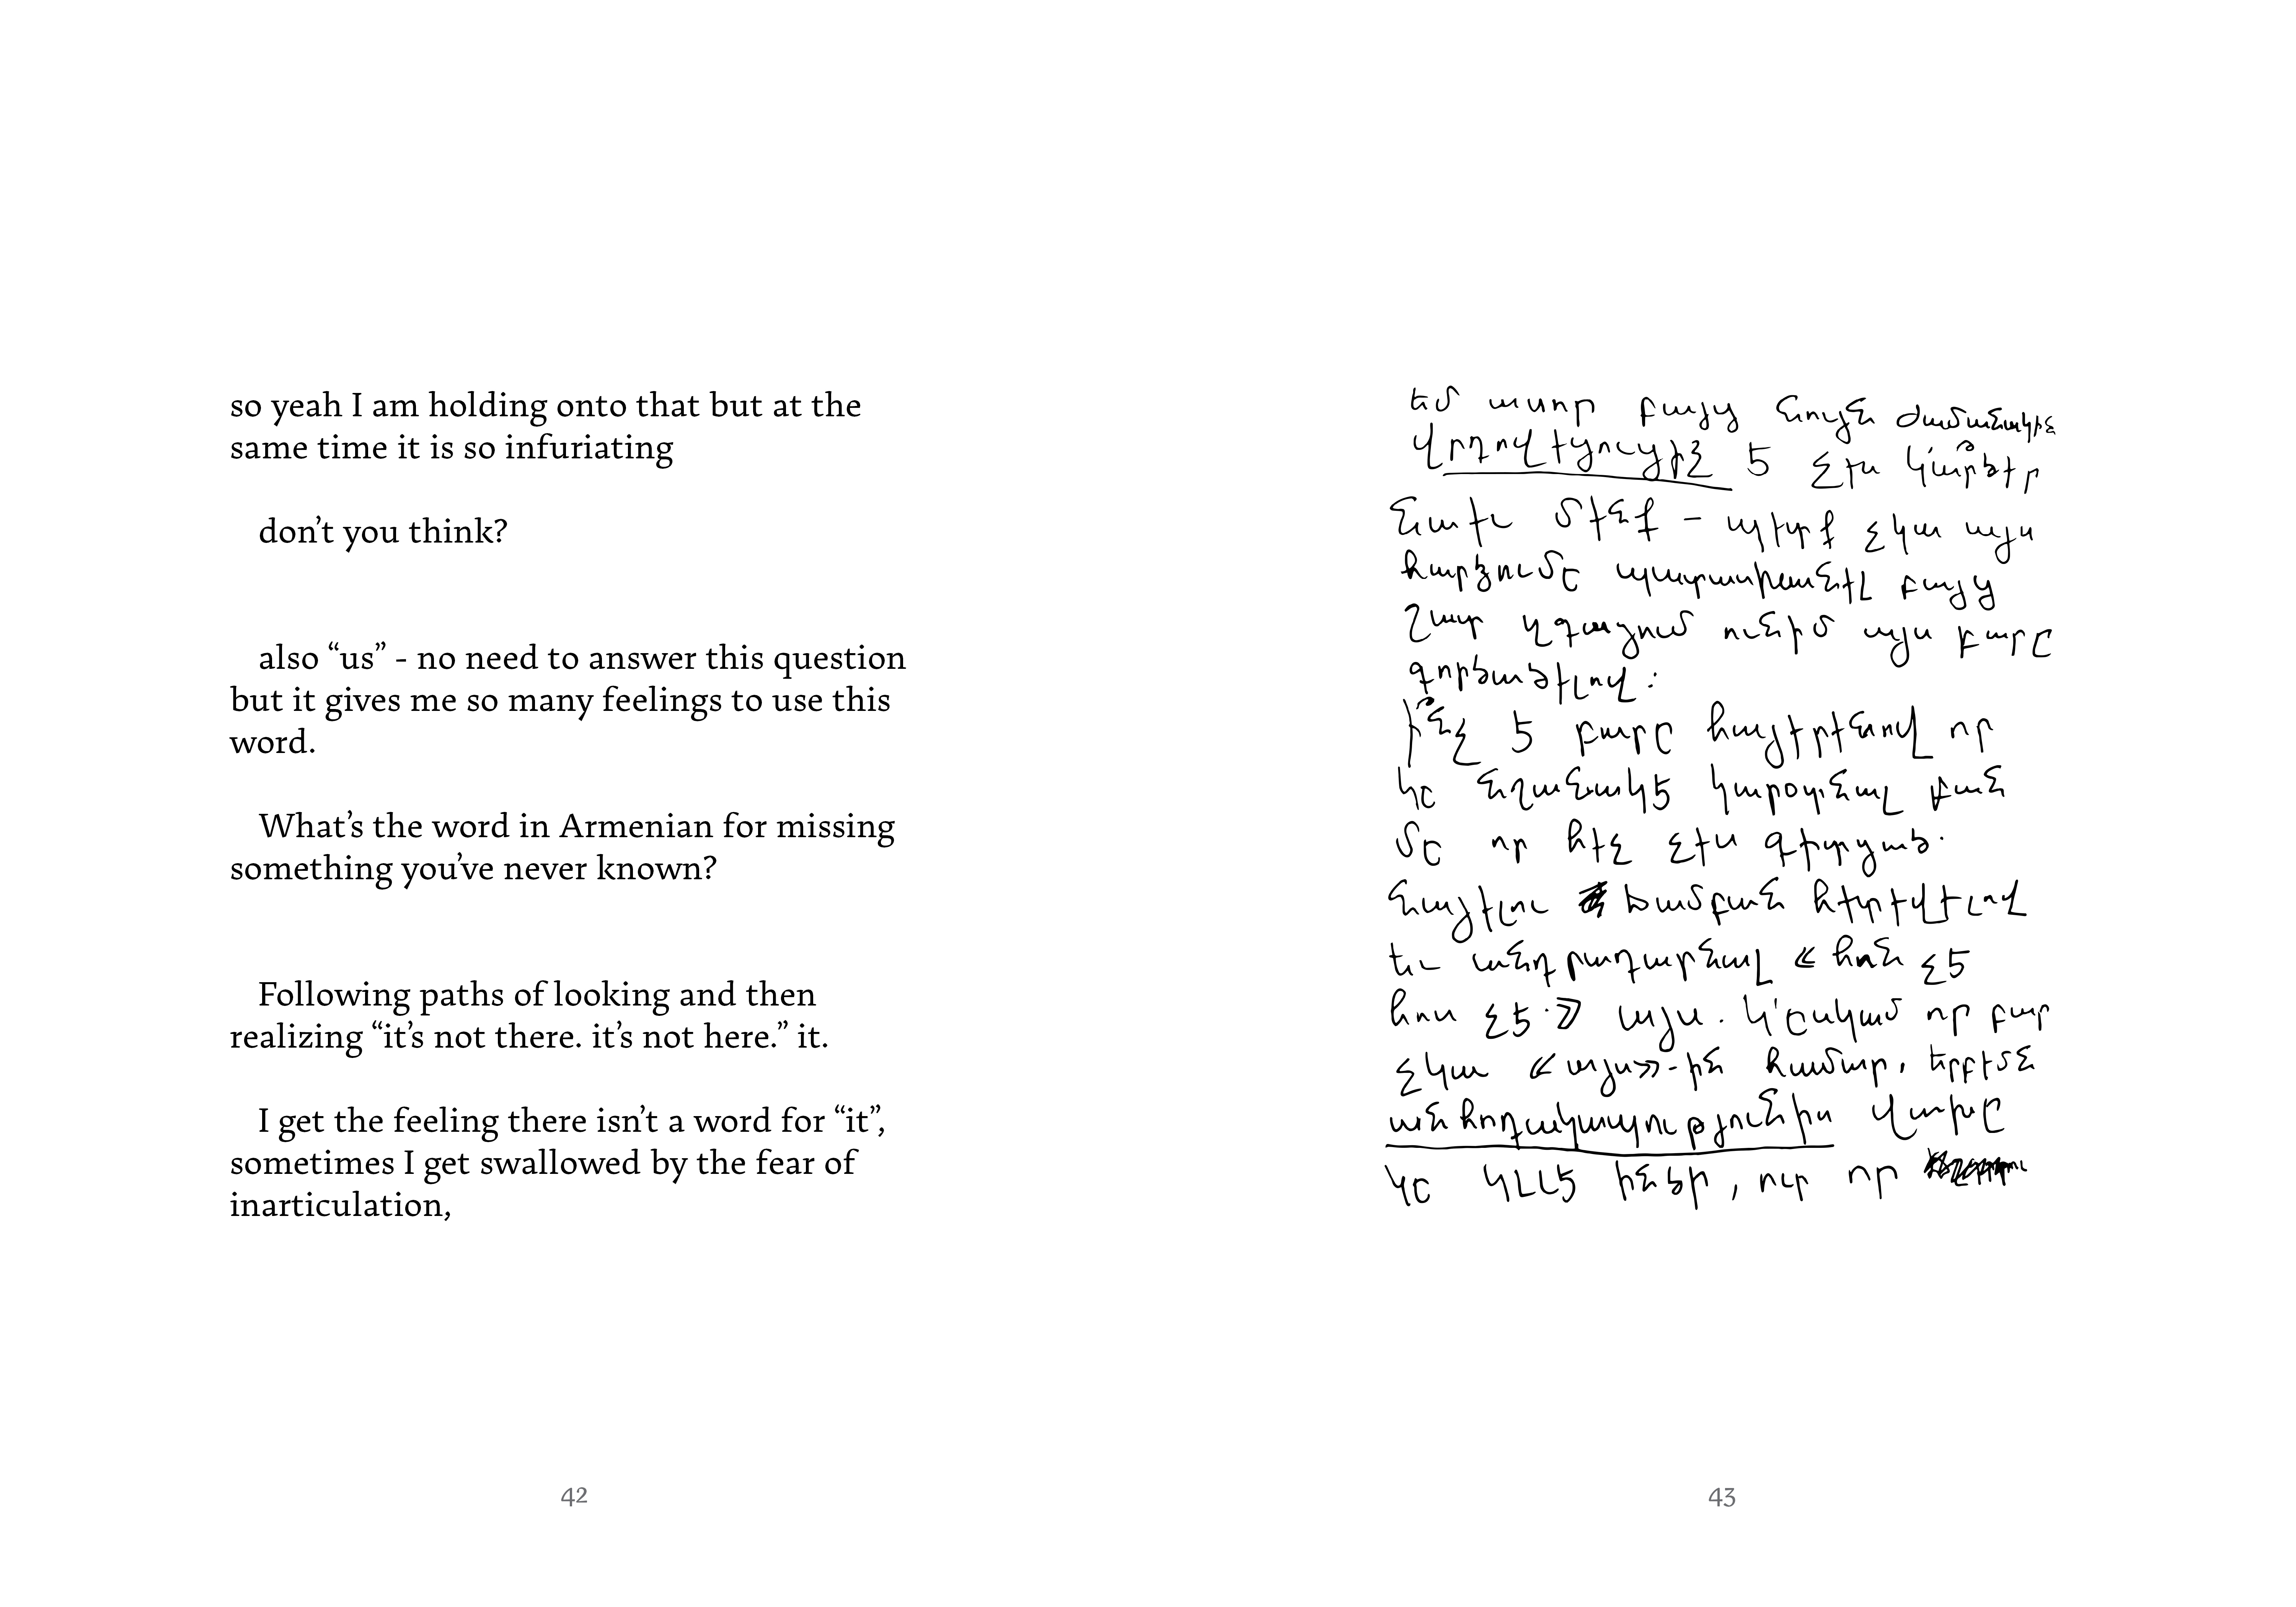 so yeah I am holding onto that but at the
same time it is so infuriating
don’t you think?
also “us” - no need to answer this question
but it gives me so many feelings to use this
word.
What’s the word in Armenian for missing
something you’ve never known?
Following paths of looking and then
realizing “it’s not there. it’s not here.” it.
I get the feeling there isn’t a word for “it”,
sometimes I get swallowed by the fear of
inarticulation,
42
եմ ասոր բայց նույն ժամանակին
է չես կ՛արծեր
նաեւ մենք - պետք չկա այս
հարցումը պատասխանել բայց
շատ զգացում ունիմ այս բառը
գործածելով։
ի՞նչ է բառը հայերենով որ
կը նշանակէ կարօտնալ բան
մը որ հեչ չես գիտցած.
նայելու ճամբան հետեւելով
եւ անդրադառնալ «հոն չէ
հոս չէ.» այս. կ՛ըսկամ որ բառ
չկա «այս»-ին համար, երբեմն
վախը
կը կլլէ ինծի, ուր որ
43